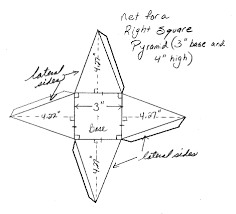 Net for a
Right Square
Pyramid (3" base and
4" high)
lateral
sides
4.27"
3"
4.27"
Base
4.27"
4.27"
lateral sides